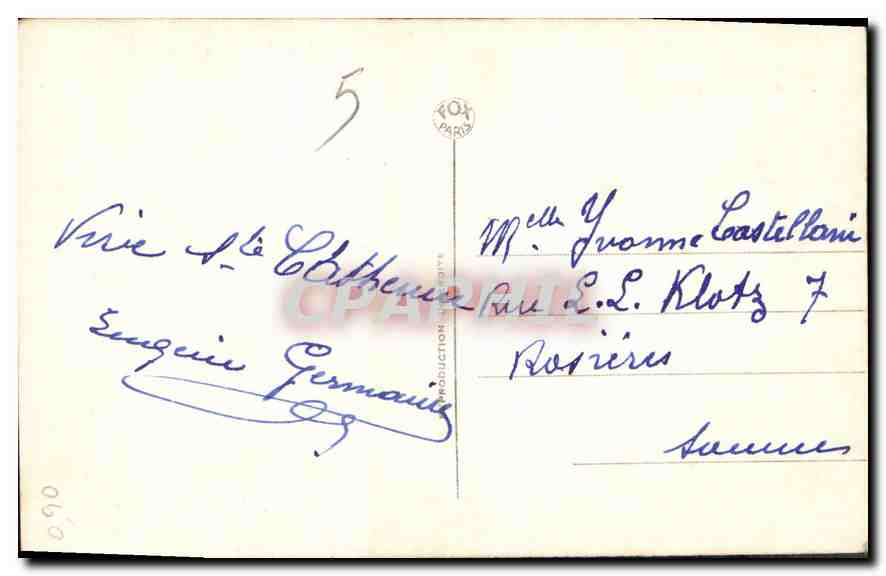 5
FOX
PARIS
Vive Ste Catherine
Eugénie Germaine
Melle Yvonne Castellani
Rue L. L. Klotz 7
Rosières
Somme
REPRODUCTION INTERDITE
CPAPHIL
0,90